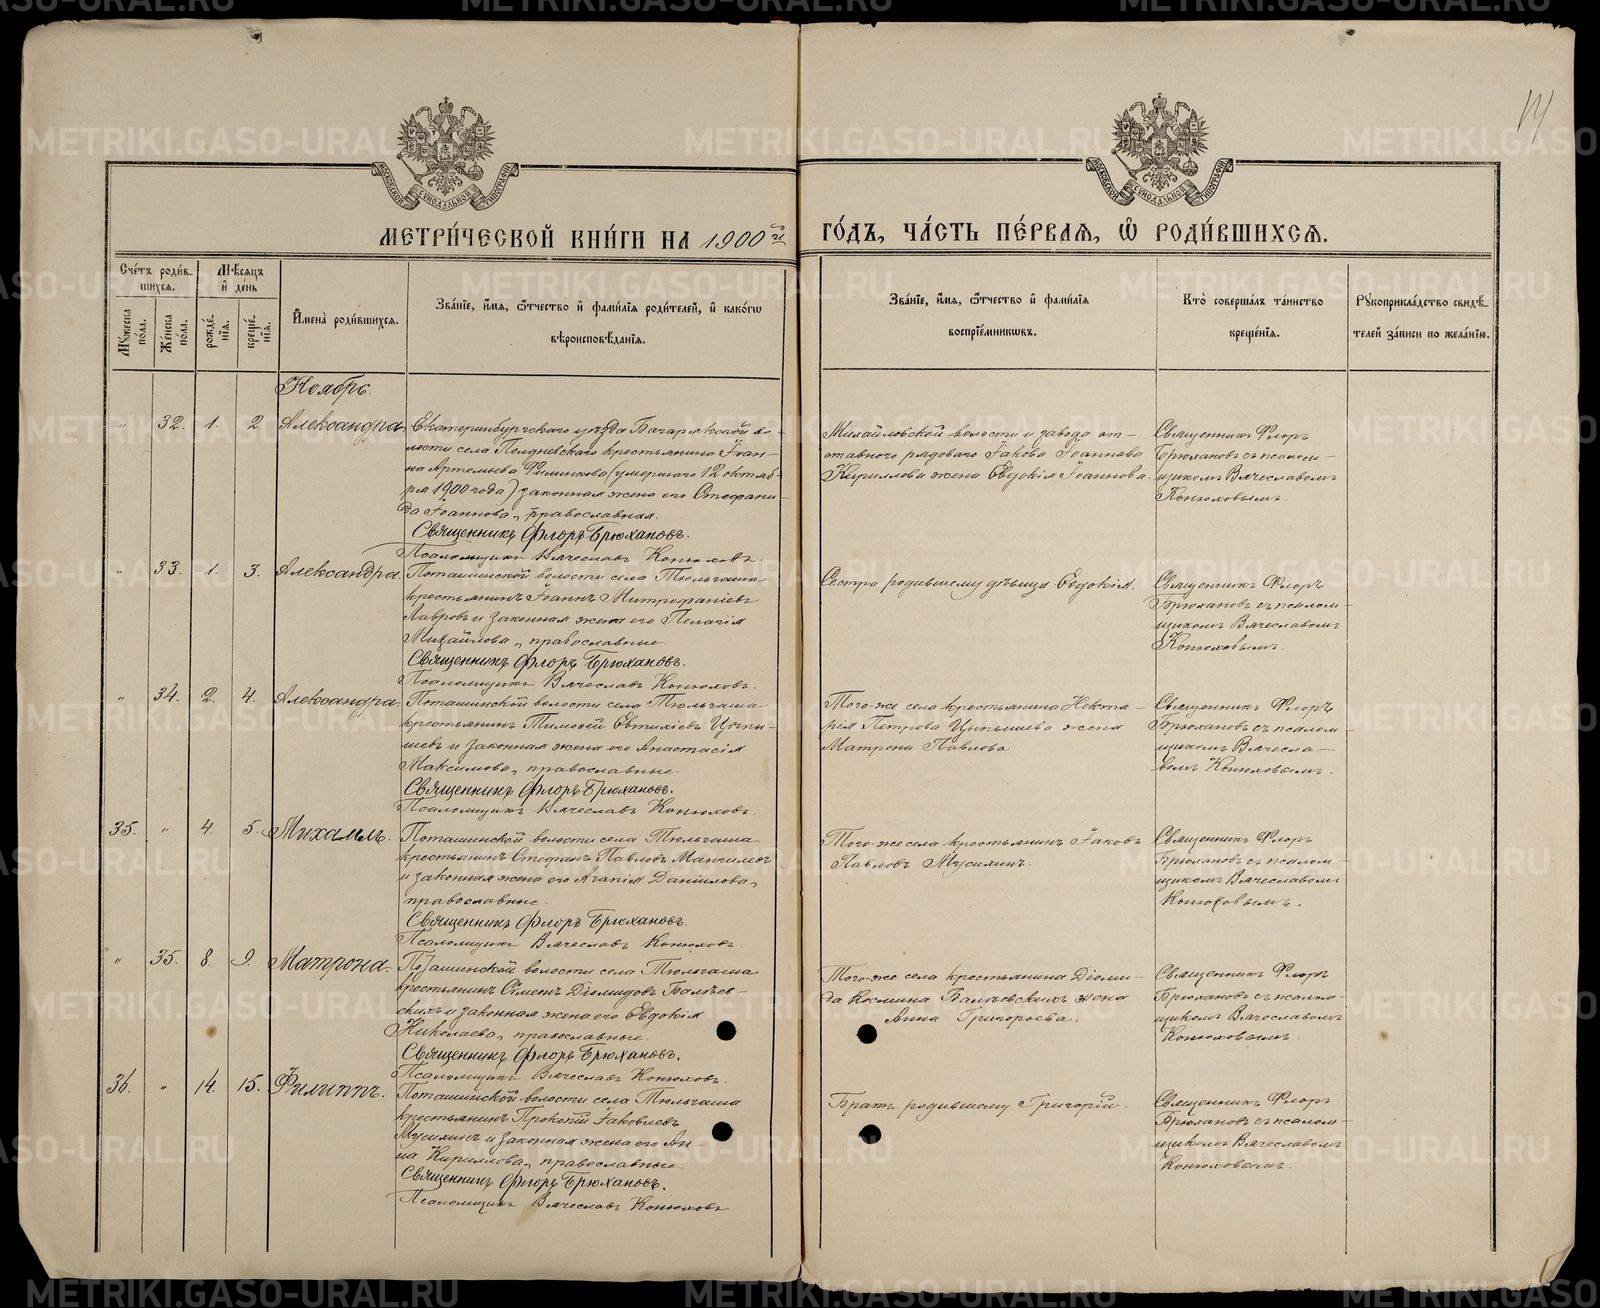 МЕТРИ́ЧЕСКОЙ КНИ́ГИ НА 1900й ГО́ДЪ, ЧА́СТЬ ПЕ́РВАЯ, Ѽ РОДИ́ВШИХСѦ.
Сче́тъ роди́вшихсѧ.
Мѣ́сѧцъ и҆ де́нь
Мꙋжеска пола.
Же́нска пола.
рожде́нїѧ.
креще́нїѧ.
И҆мена̀ роди́вшихсѧ.
Зва́нїе, и҆́мѧ, ѻ҆́тчество и҆ фами́лїѧ роди́телей, и҆ како́гѡ
вѣроисповѣ́данїѧ.
Зва́нїе, и҆́мѧ, ѻ҆́тчество и҆ фами́лїѧ
воспрїе́мникѡвъ.
Кто̀ соверша́лъ та́инство
креще́нїѧ.
Рꙋкоприкла́дство свидѣ́-
телей за́писи по жела́нїю.
Ноябрь.
" 32. 1. 2 Александра
Екатеринбургскаго уѣзда Багарякской во-
лости села Полдневскаго крестьянина Іоан-
на Артемьева (умершаго 12 октяб-
ря 1900 года) законная жена его Стефани-
да Іоаннова, православная.
Священникъ Флоръ Брюхановъ.
Псаломщикъ Вячеславъ Конюховъ.
Михайловской волости и завода от-
ставного рядоваго Іакова Іоаннова
Кириллова жена Евдокія Іоаннова.
Священникъ Флоръ
Брюхановъ съ псалом-
щикомъ Вячеславомъ
Конюховымъ.
" 33. 1. 3. Александра
Поташинской волости села Тюльгаша
крестьянинъ Іоаннъ Митрофаніевъ
Лавровъ и законная жена его Пелагія
Михайлова, православные.
Священникъ Флоръ Брюхановъ.
Псаломщикъ Вячеславъ Конюховъ.
Сестра родившему дѣвица Евдокія.
Священникъ Флоръ
Брюхановъ съ псалом-
щикомъ Вячеславомъ
Конюховымъ.
" 34. 2. 4. Александра
Поташинской волости села Тюльгаша
крестьянинъ Тимофей Евтихіевъ Цыпы-
шевъ и законная жена его Анастасія
Максимова, православные.
Священникъ Флоръ Брюхановъ.
Псаломщикъ Вячеславъ Конюховъ.
Того-же села крестьянина Некта-
рія Петрова Цыпышева жена
Матрона Павлова
Священникъ Флоръ
Брюхановъ съ псалом-
щикомъ Вячесла-
вомъ Конюховымъ.
35. " 4. 5. Михаилъ.
Поташинской волости села Тюльгаша
крестьянинъ Стефанъ Павловъ Мангилевъ
и законная жена его Агапія Даніилова,
православные.
Священникъ Флоръ Брюхановъ.
Псаломщикъ Вячеславъ Конюховъ.
Того-же села крестьянинъ Іаковъ
Павловъ Мусихинъ.
Священникъ Флоръ
Брюхановъ съ псалом-
щикомъ Вячеславомъ
Конюховымъ.
" 35. 8. 9. Матрона.
Поташинской волости села Тюльгаша
крестьянинъ Сѵмеонъ Діомидовъ Балъев-
скихъ и законная жена его Евдокія
Николаева, православные.
Священникъ Флоръ Брюхановъ.
Псаломщикъ Вячеславъ Конюховъ.
Того-же села крестьянина Діоми-
да Космина Балъевскихъ жена
Анна Григорьева.
Священникъ Флоръ
Брюхановъ съ псалом-
щикомъ Вячеславомъ
Конюховымъ.
36. " 14. 15. Филиппъ.
Поташинской волости села Тюльгаша
крестьянинъ Прокопій Іаковлевъ
Мусихинъ и законная жена его Ан-
на Кириллова, православные.
Священникъ Флоръ Брюхановъ.
Псаломщикъ Вячеславъ Конюховъ
Братъ родившему Григорій.
Священникъ Флоръ
Брюхановъ съ псалом-
щикомъ Вячеславомъ
Конюховымъ.
METRIKI.GASO-URAL.RU